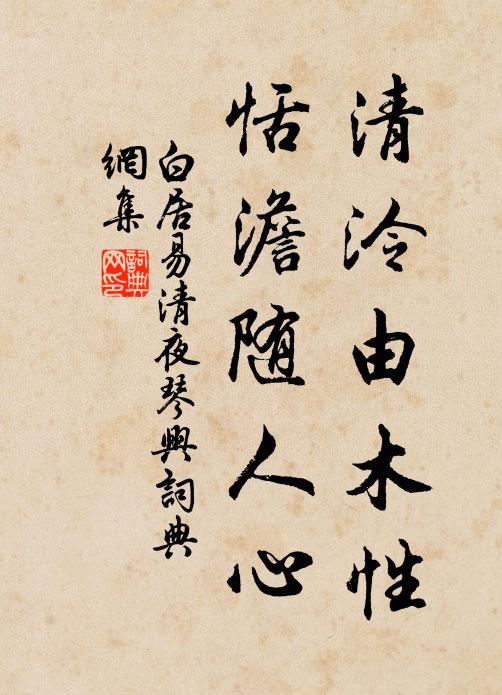 清泠由木性
恬澹随人心
白居易清夜琴興詞典
網集
詞典
网印